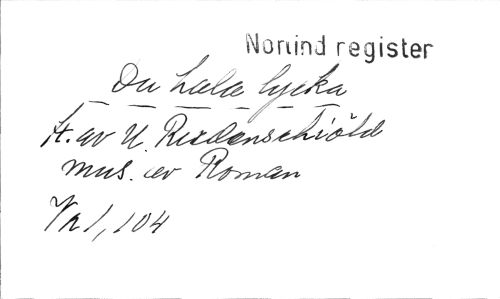 Norlind register
Du hela lycka
t. av U. Ridderschiöld
mus. av Roman
Vr 1, 104